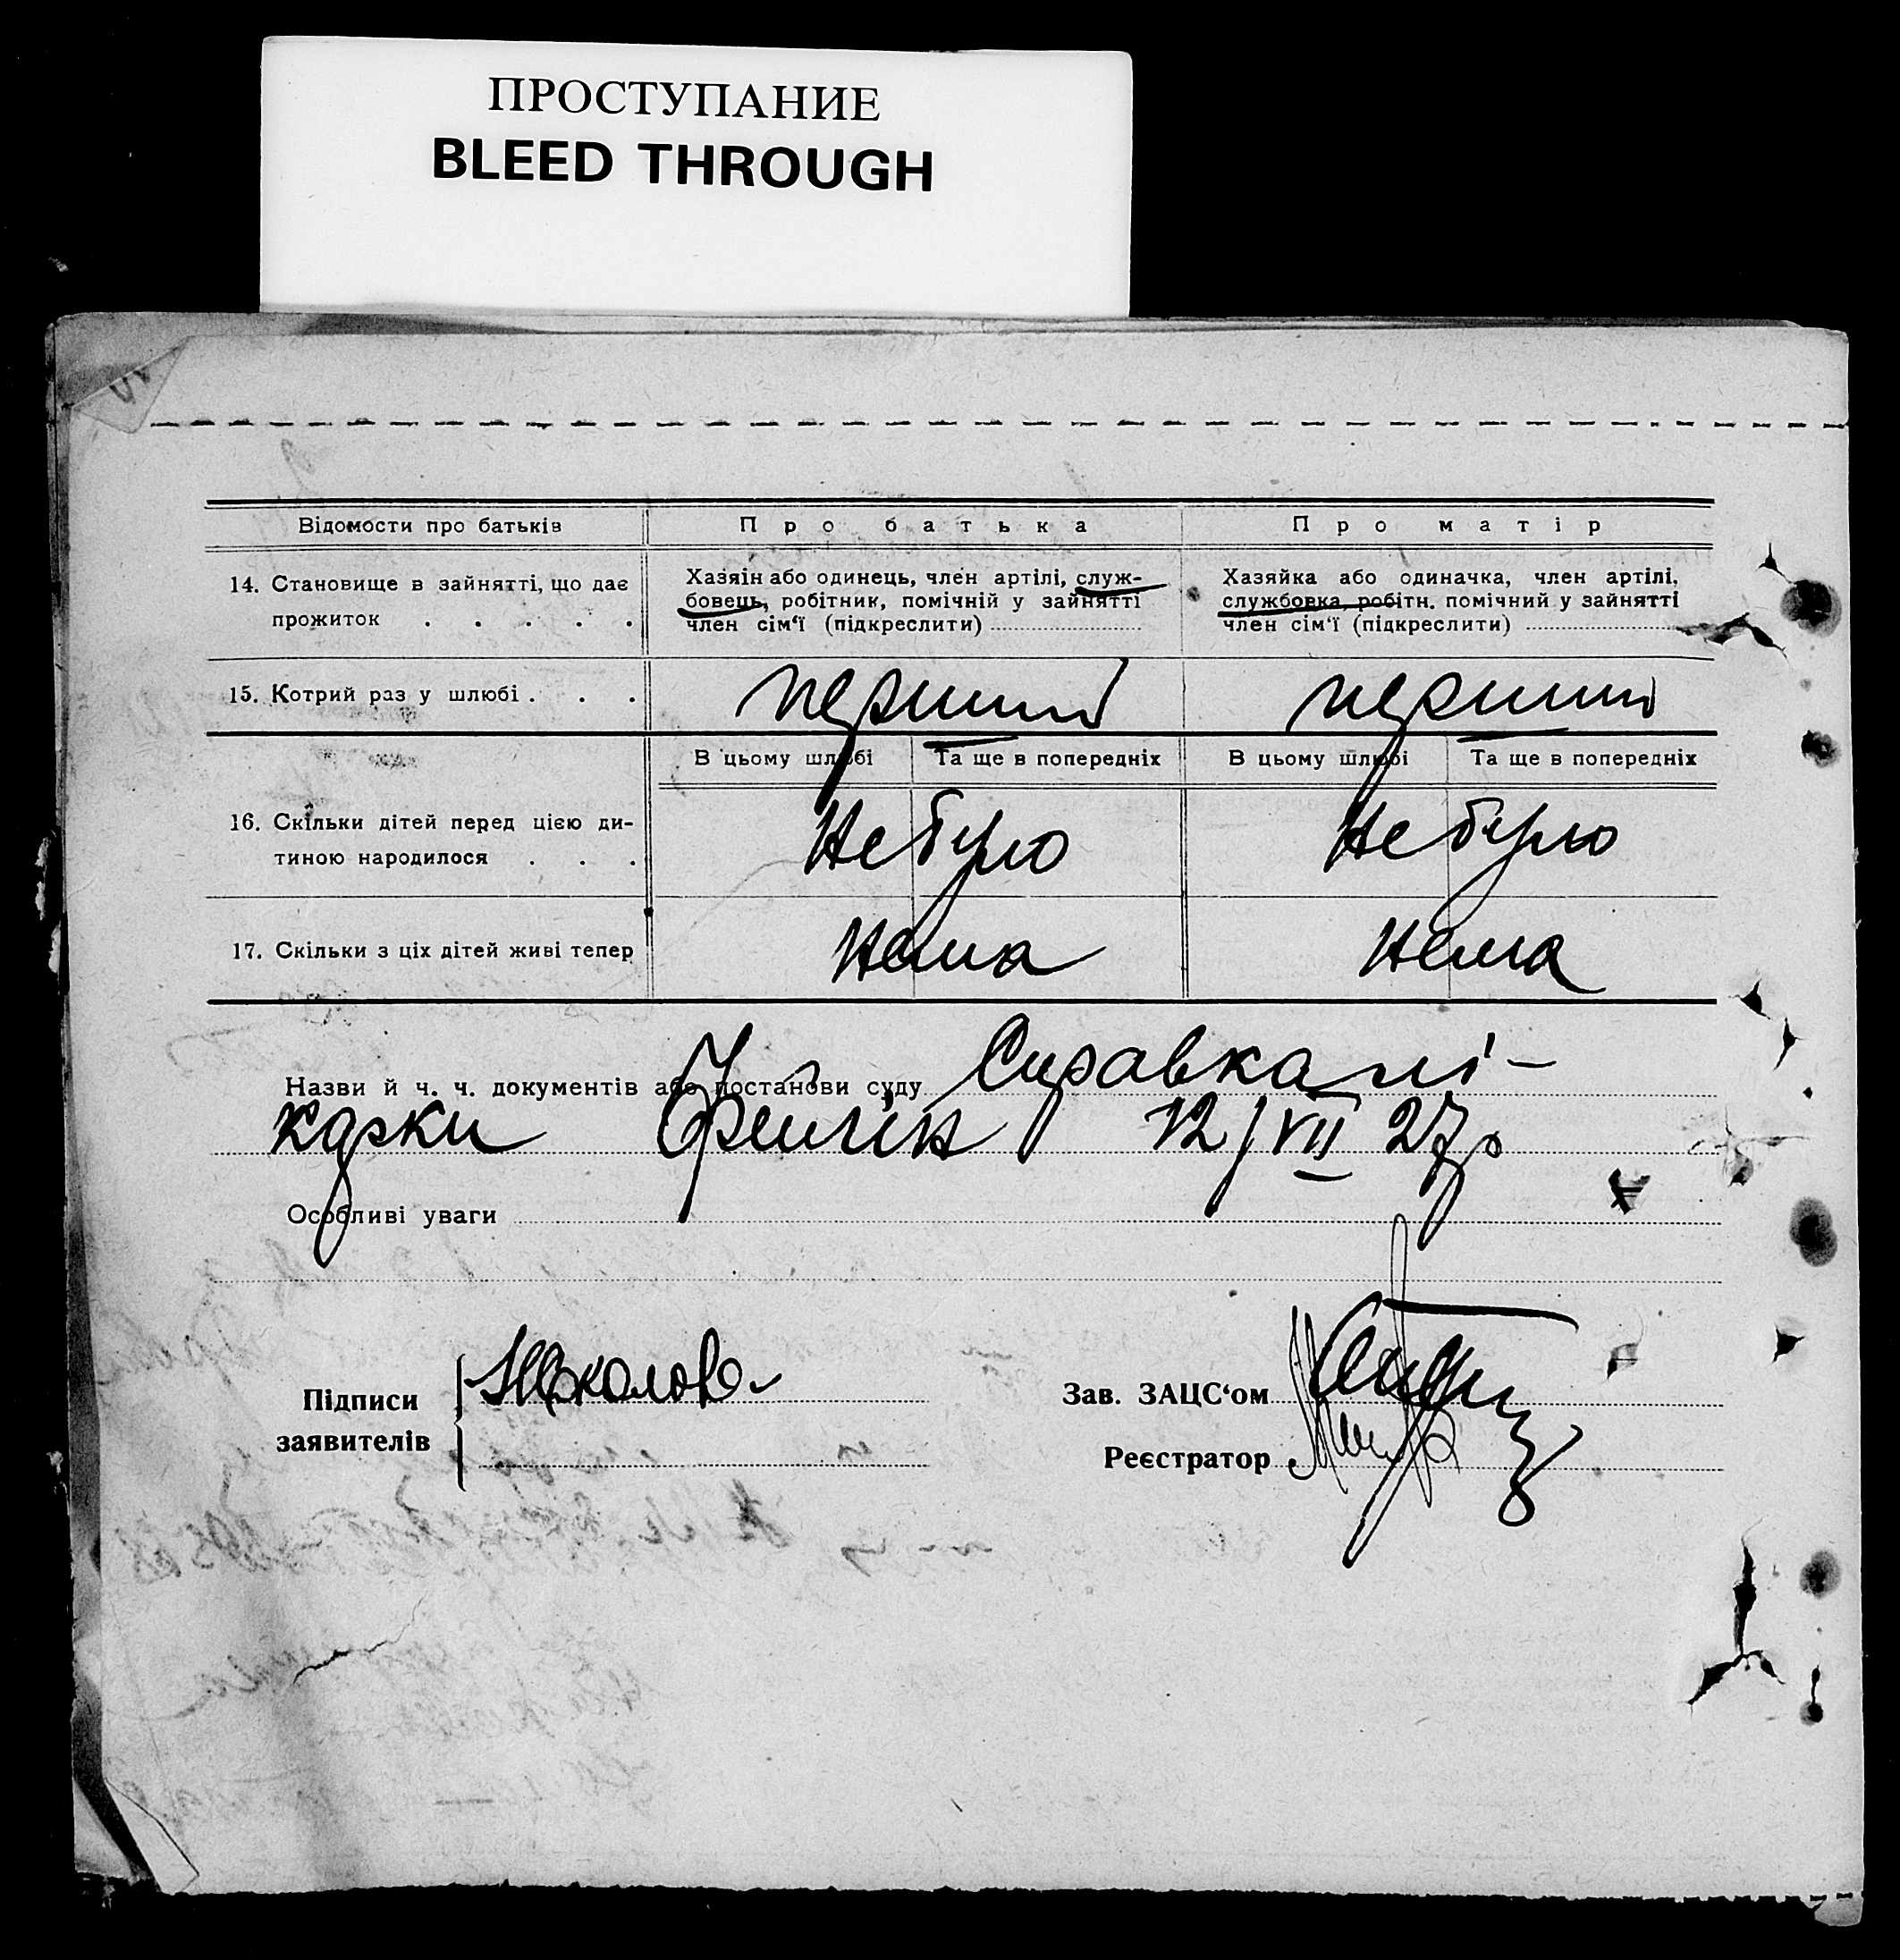 ПРОСТУПАНИЕ
BLEED THROUGH
Відомости про батьків
Про батька
Про матір
14. Становище в зайнятті, що дає
прожиток . . . . .
Хазяін або одинець, член артілі, служ-
бовець, робітник, помічній у зайнятті
член сім‘ї (підкреслити)
Хазяйка або одиначка, член артілі,
службовка, робітн. помічний у зайнятті
член сім‘ї (підкреслити)
15. Котрий раз у шлюбі . . .
перший
перший
В цьому шлюбі
Та ще в попередніх
В цьому шлюбі
Та ще в попередніх
16. Скільки дітей перед цією ди-
тиною народилося . . .
Не було
Не було
17. Скільки з ціх дітей живі тепер
Нема
Нема
Назви й ч. ч. документів або постанови суду Справка лі-
карки 12/VII 27р
Особливі уваги
Підписи
заявителів
Зав. ЗАЦС‘ом
Реєстратор